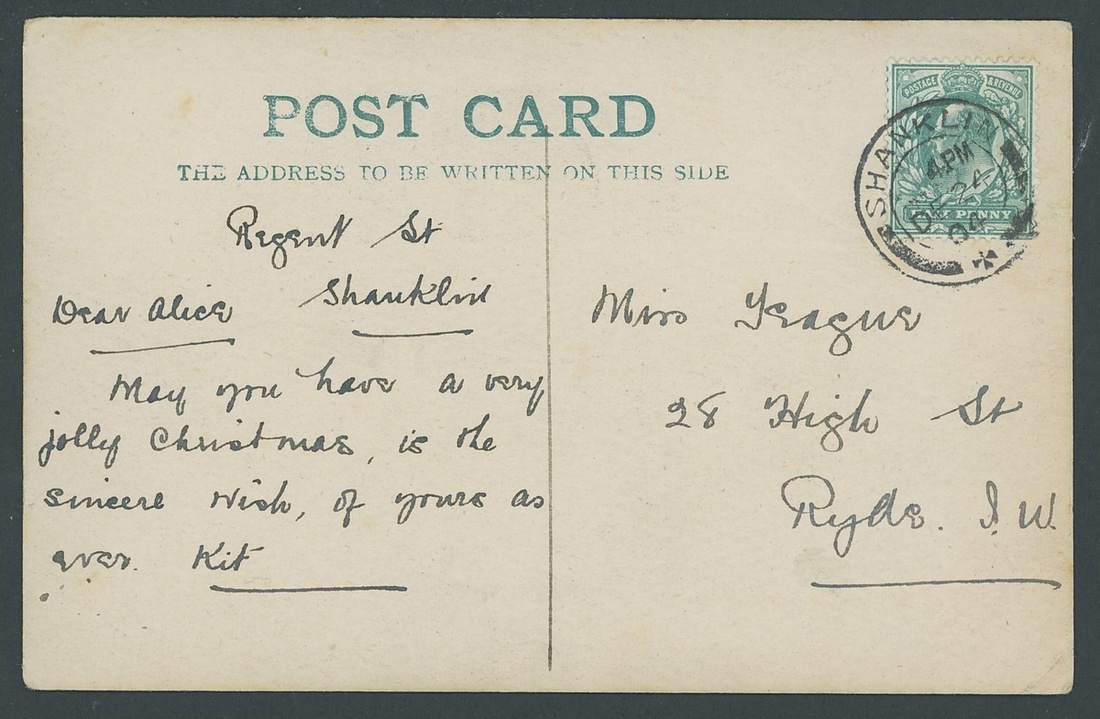 POST CARD
THE ADDRESS TO BE WRITTEN ON THIS SIDE
POSTAGE & REVENUE
HALF PENNY
SHANKLIN
4 PM
DE 24
04
Regent St
Shanklin
Dear Alice
May you have a very
jolly Christmas, is the
sincere wish, of yours as
ever. Kit
Miss Teague
28 High St
Ryde. I.W.